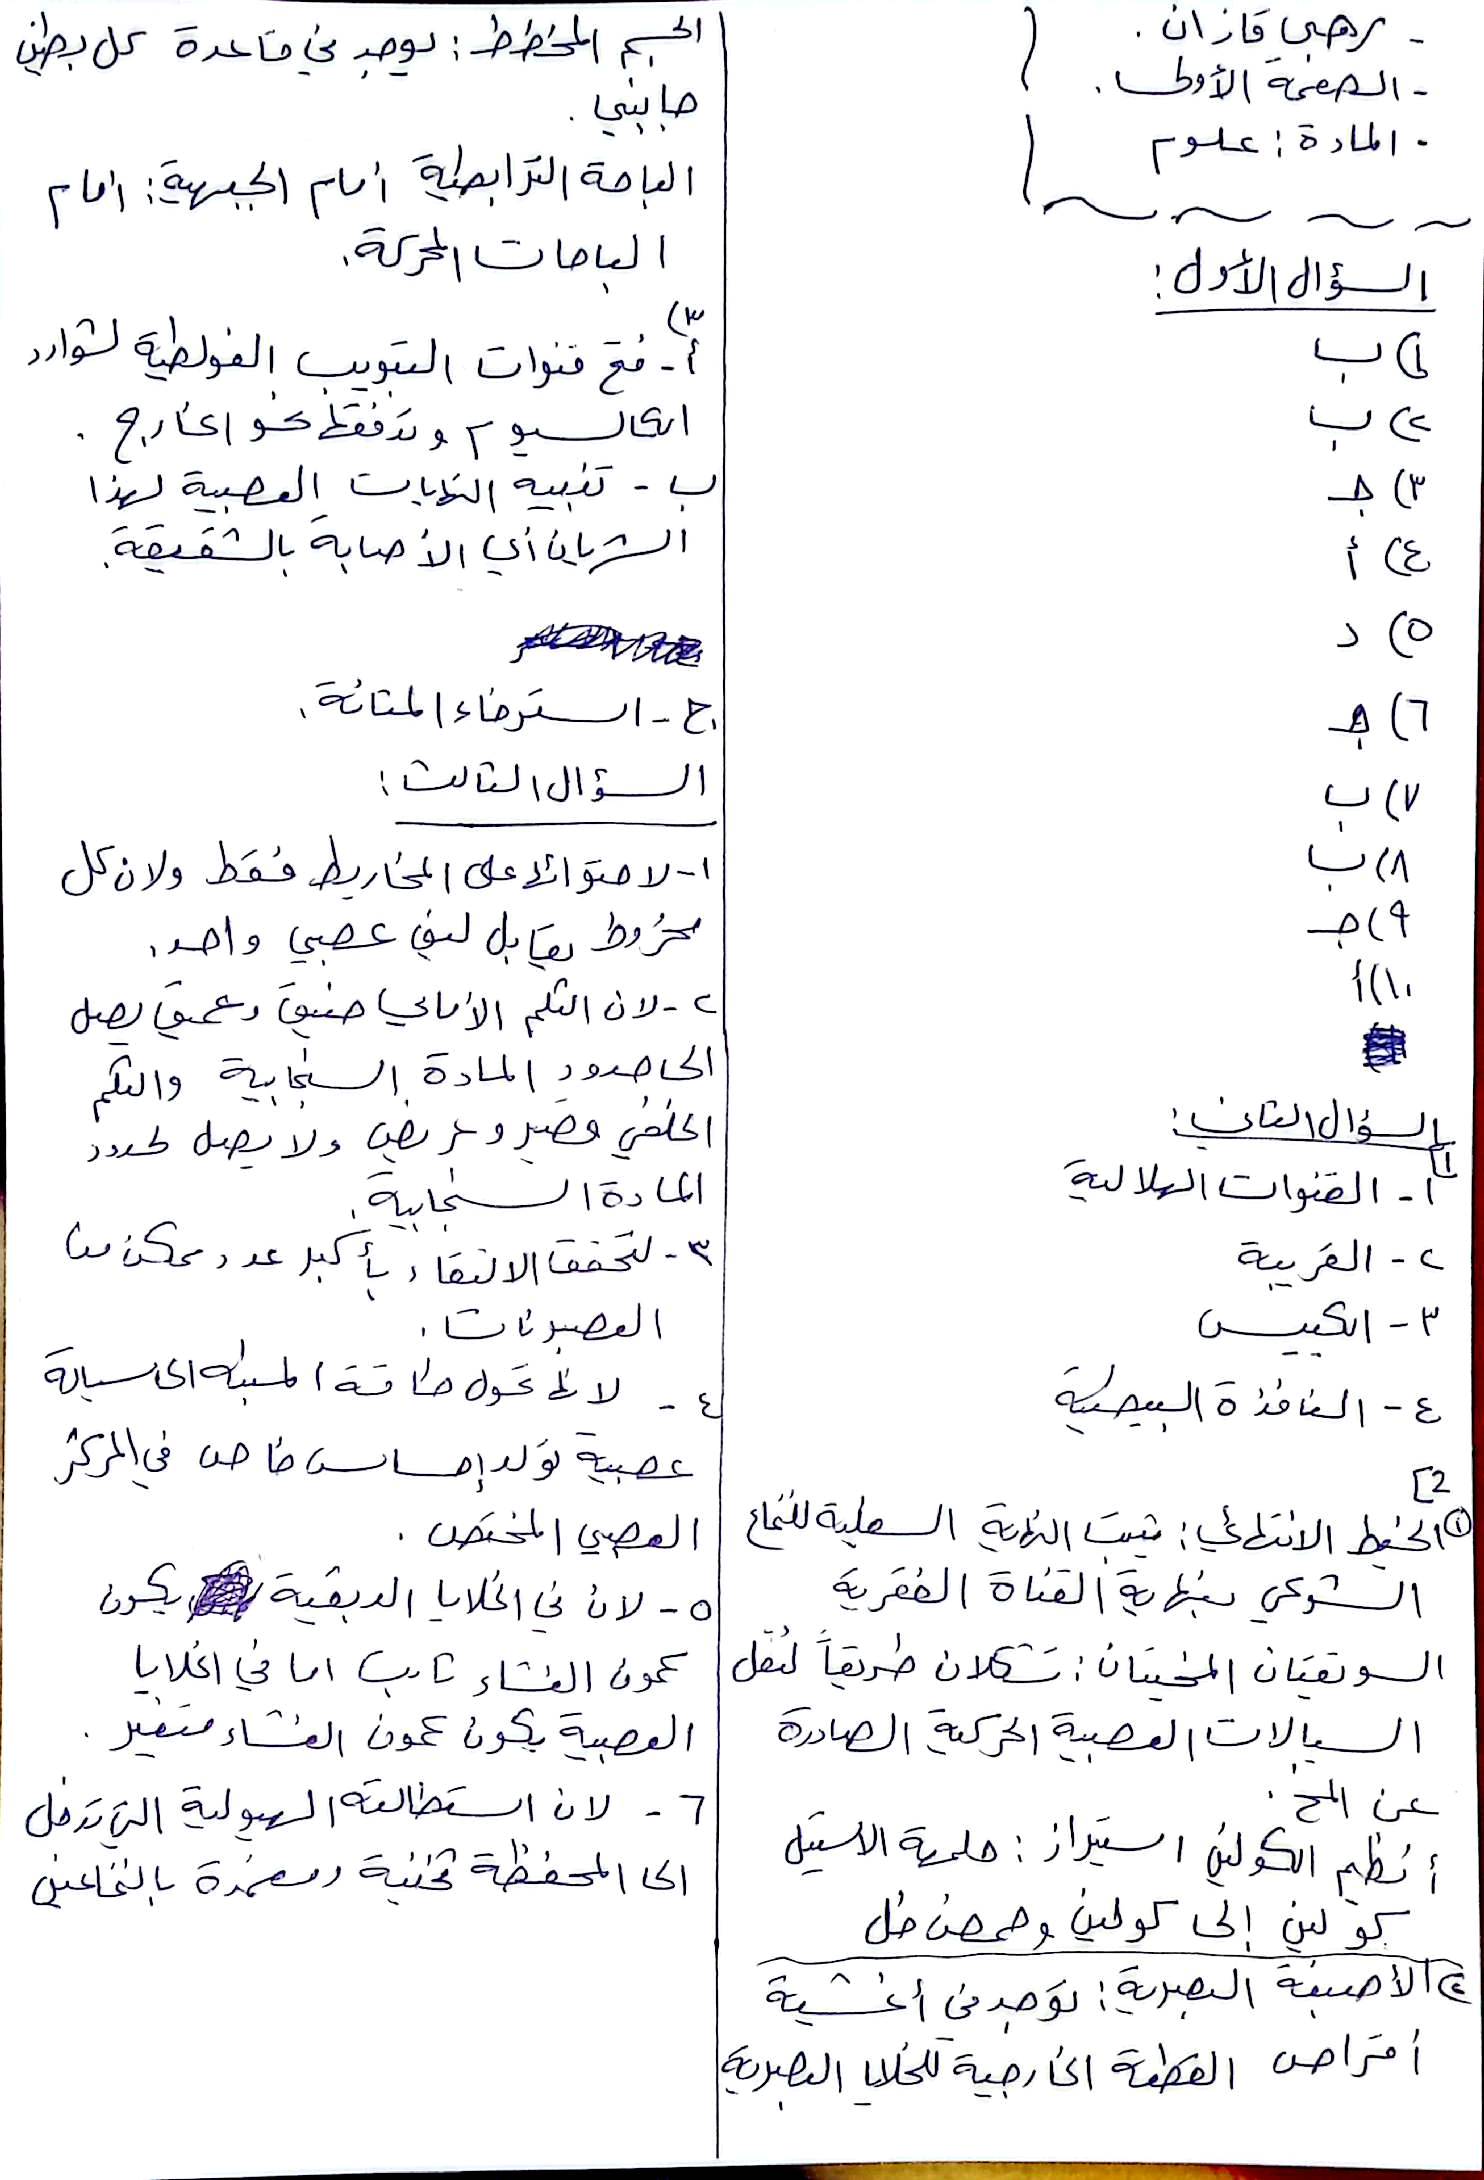 - رهبي قازان.
- الصفحة الأولى.
- المادة: علوم
السؤال الأول:
١) ب
٢) ب
٣) جـ
٤) أ
٥) د
٦) جـ
٧) ب
٨) ب
٩) جـ
١٠) أ
السؤال الثاني:
1]
١- القنوات الهلالية
٢- القريبة
٣- الكييس
٤- النافذة البيضية
2]
① الخيط الانتهائي: تثبت النهاية السفلية للنخاع
الشوكي بنهاية القناة الفقرية
السويقتان المخيتان: تشكلان طريقاً لنقل
السيالات العصبية الحركية الصادرة
عن المخ.
أنظيم الكولين استيراز: حلمهة الاستيل
كولين إلى كولين وحمض خل
② الأصبغة البصرية: توجد في أغشية
أقراص القطعة الخارجية للخلايا البصرية
الجسم المخطط: يوجد في قاعدة كل بطين
جانبي.
الباحة الترابطية أمام الجبهية: أمام
الباحات المحركة.
٣)
أ- فتح قنوات التبويب الفولطية لشوارد
الكالسيوم وتدفقها نحو الخارج.
ب- تنبيه النهايات العصبية لهذا
الشريان أي الأصابة بالشقيقة.
ج- استرخاء المثانة.
السؤال الثالث:
١- لاحتوائها على المخاريط فقط ولان كل
مخروط يقابل ليف عصبي واحد.
٢- لان الثلم الأمامي ضيق وعميق يصل
الى حدود المادة السنجابية والثلم
الخلفي قصير وعريض ولا يصل لحدود
المادة السنجابية.
٣- لتحقق الالتقاء بأكبر عدد ممكن من
العصبونات.
٤- لانها تحول طاقة المنبه الى سيالة
عصبية تولد إحساس خاص في المركز
العصبي المختص.
٥- لان في الخلايا الدبقية يكون
كمون الغشاء ثابت اما في الخلايا
العصبية يكون كمون الغشاء متغير.
٦- لان استطالته الهيولية التي تدخل
الى المحفظة ثخينة ومغمدة بالنخاعين